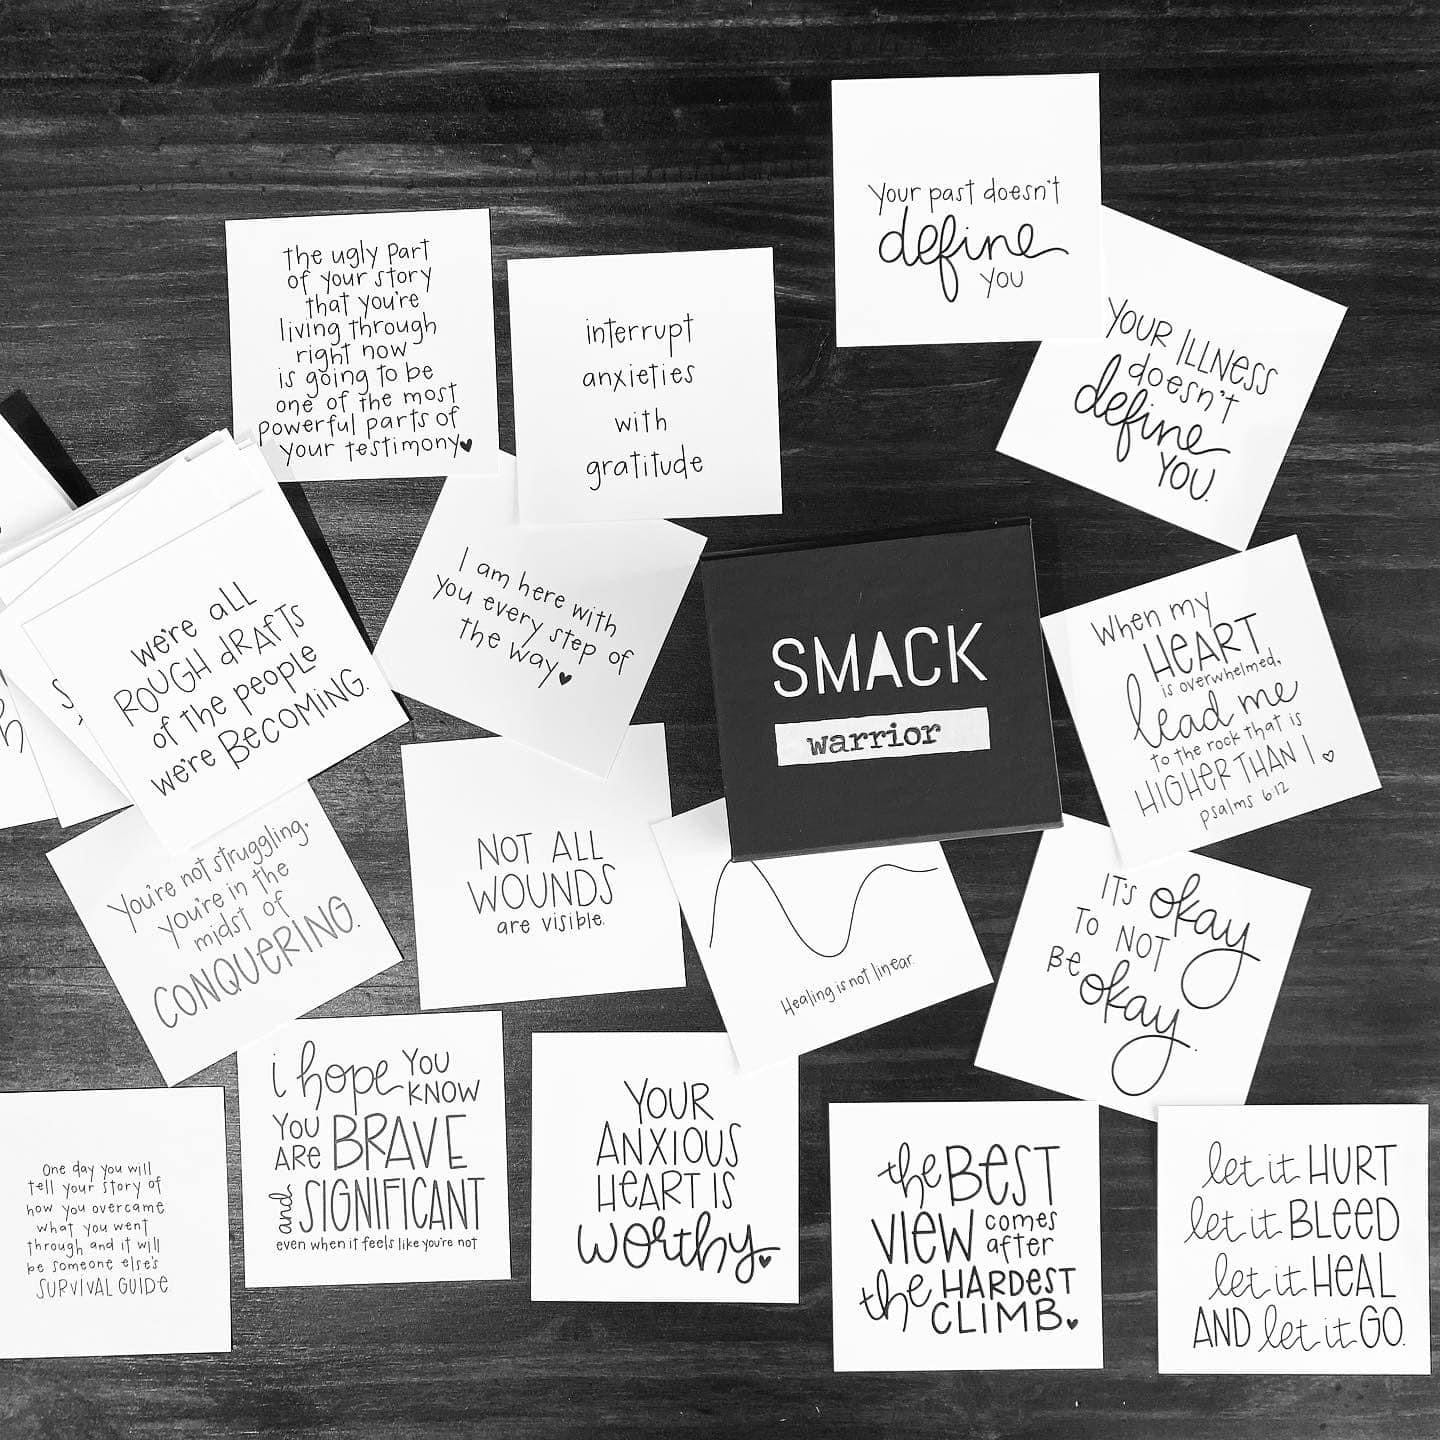 Your past doesn't
define
you
the ugly part
of your story
that you're
living through
right now
is going to be
one of the most
powerful parts of
your testimony
interrupt
anxieties
with
gratitude
YOUR ILLNESS
doesn't
define
YOU.
I am here with
you every step of
the way
we're all
ROUGH dRAFTS
of the people
we're BECOMING.
SMACK
warrior
When my
HEART
is overwhelmed,
lead me
to the rock that is
HIGHER THAN I
psalms 61:2
You're not struggling,
you're in the
midst of
CONQUERING.
NOT ALL
WOUNDS
are visible.
Healing is not linear.
IT'S okay
TO NOT
BE okay.
i hope YOU
KNOW
YOU
ARE BRAVE
and SIGNIFICANT
even when it feels like you're not
YOUR
ANXIOUS
HEART IS
worthy
the BEST
VIEW comes
after
the HARDEST
CLIMB.
let it HURT
let it BLEED
let it HEAL
AND let it GO.
One day you will
tell your story of
how you overcame
what you went
through and it will
be someone else's
SURVIVAL GUIDE.